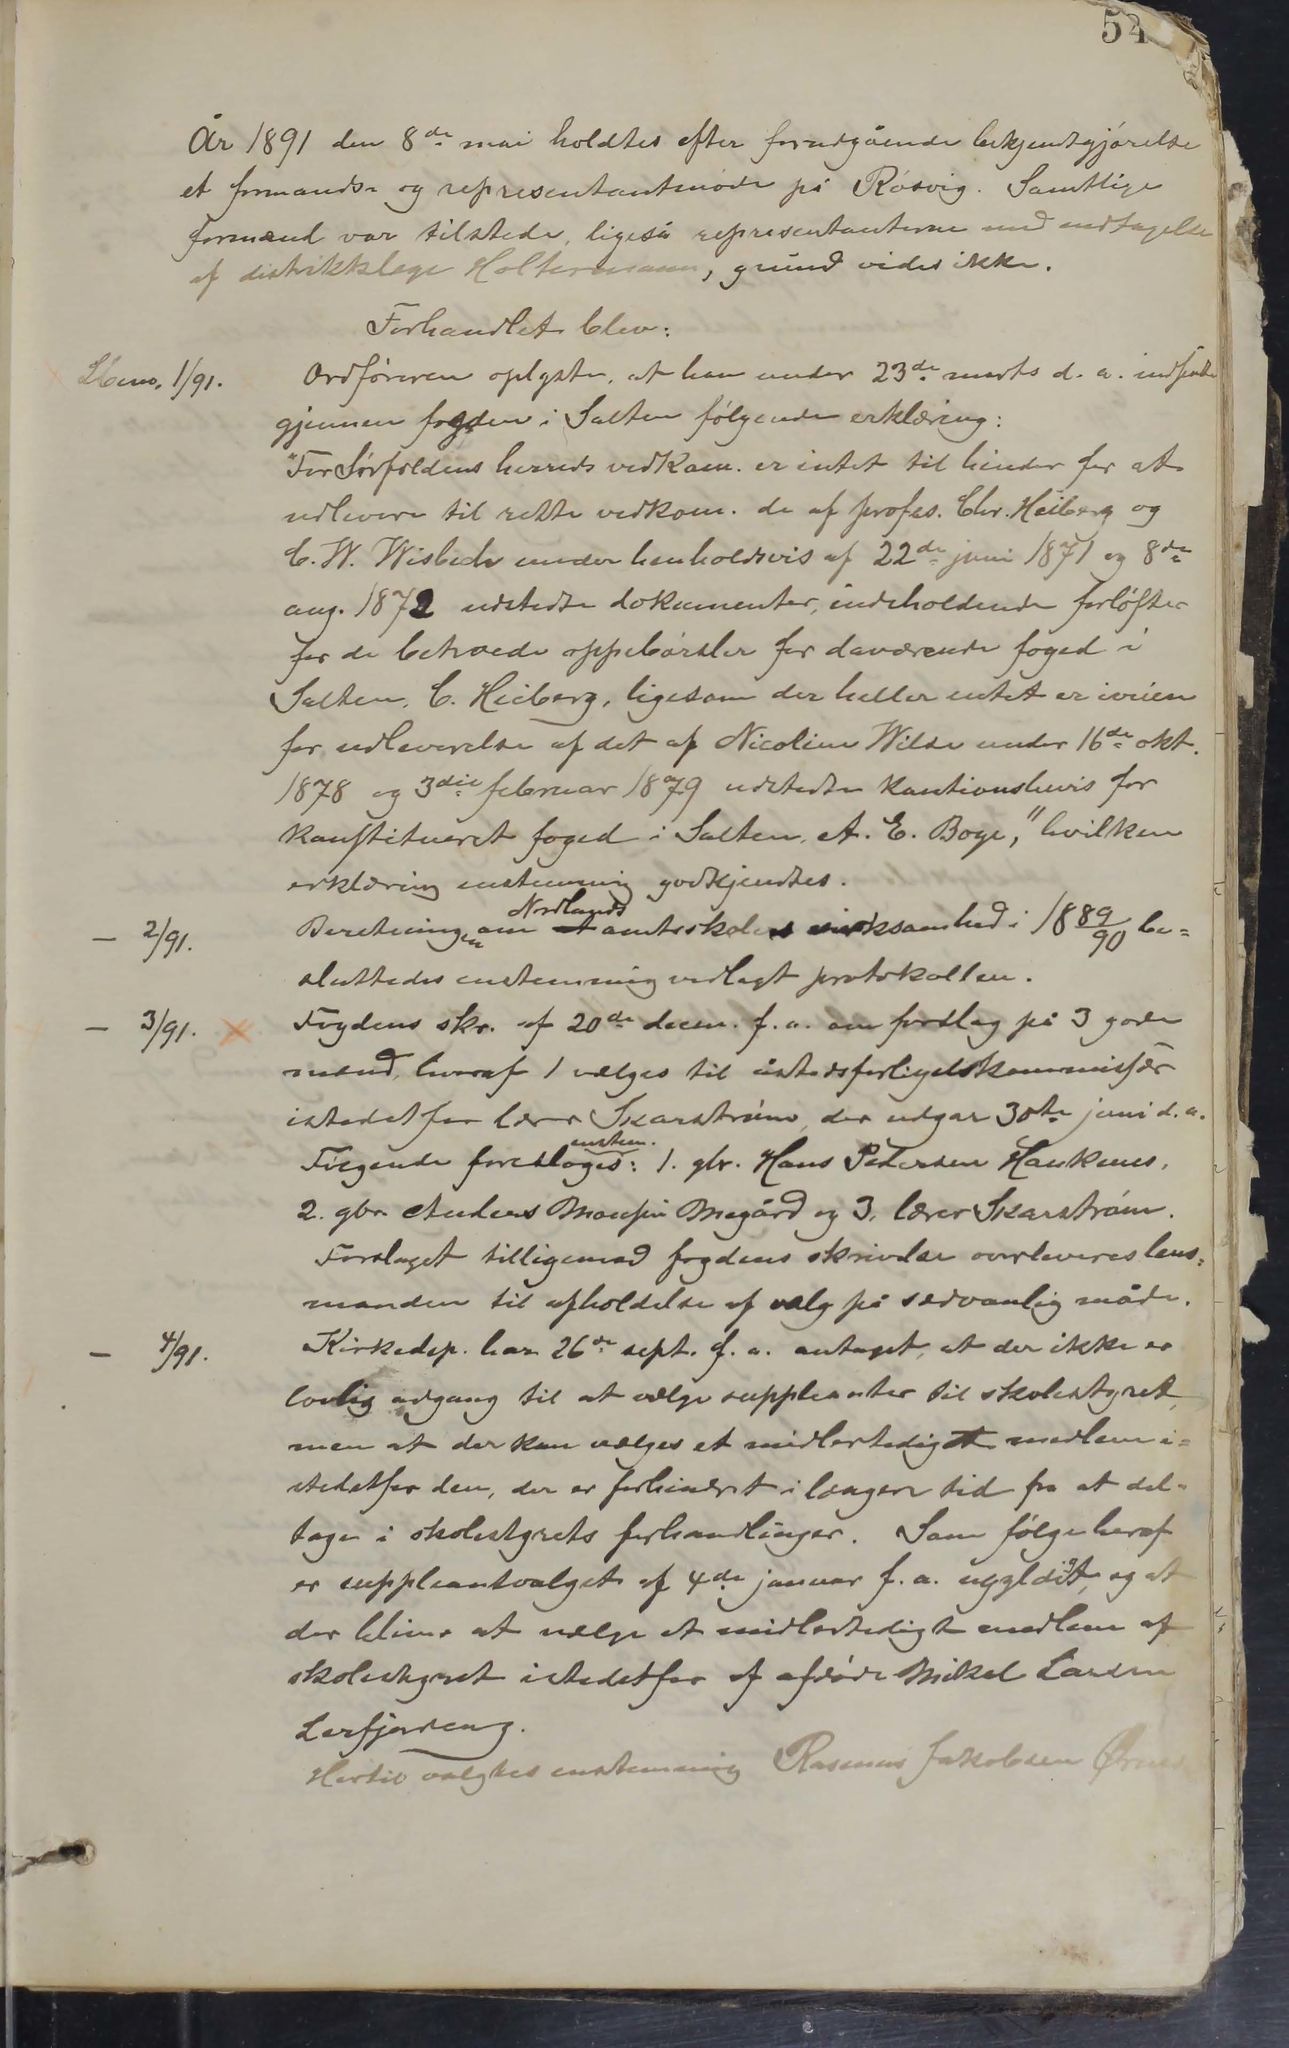 54
År 1891 den 8de mai holdtes efter forudgående bekjendtgjørelse
et formands- og representantmøde på Røsvig. Samtlige
formænd var tilstede, ligeså representanterne med undtagelse
af distriktslæge Holtermann, grund vides ikke.
Forhandlet blev:
1/91. Ordføreren oplyste, at han under 23de marts d. a. indsendte
gjennem fogden i Salten følgende erklæring:
"For Sørfoldens herreds vedkom. er intet til hinder for at
udlevere til rette vedkom. de af profes. Chr. Heiberg og
C. W. Wisbech under henholdsvis af 22de juni 1871 og 8de
aug. 1872 udstedte dokumenter, indeholdende forløfter
for de betroede oppebørsler for daværende foged i
Salten, C. Heiberg, ligesom der heller intet er iveien
for udleverelse af det af Nicoline Wilse under 16de okt.
1878 og 3die februar 1879 udstedte kautionsbevis for
konstitueret foged i Salten, A. E. Boye," hvilken
erklæring enstemmig godkjendtes.
— 2/91. Beretningen om Nordlands amtsskoles virksomhed i 1889/90 be=
sluttedes enstemmig vedlagt protokollen.
— 3/91. Fogdens skr. af 20de decem. f. a. om forslag på 3 gode
mænd, hvoraf 1 vælges til åstedsforligelskommissær
istedetfor lærer Skarstrøm, der udgår 30te juni d. a.
Følgende foresloges enstem.: 1. gbr. Hans Pedersen Haukenes,
2. gbr. Anders Megård og 3. lærer Skarstrøm.
Forslaget tilligemed fogdens skrivelse overleveres lens=
manden til afholdelse af valg på sedvanlig måde.
— 4/91. Kirkedep. har 26de sept. f. a. antaget, at der ikke er
lovlig adgang til at vælge suppleanter til skolestyret,
men at der kan vælges et midlertidigt medlem i=
stedetfor den, der er forhindret i længere tid fra at del=
tage i skolestyrets forhandlinger. Som følge heraf
er suppleantvalget af 4de januar f. a. ugyldigt, og at
der bliver at vælge et midlertidigt medlem af
skolestyret istedetfor af afdøde Mikal Larsen
Lerfjordeng.
Hertil valgtes enstemmig Rasmus Jakobsen Ørnes